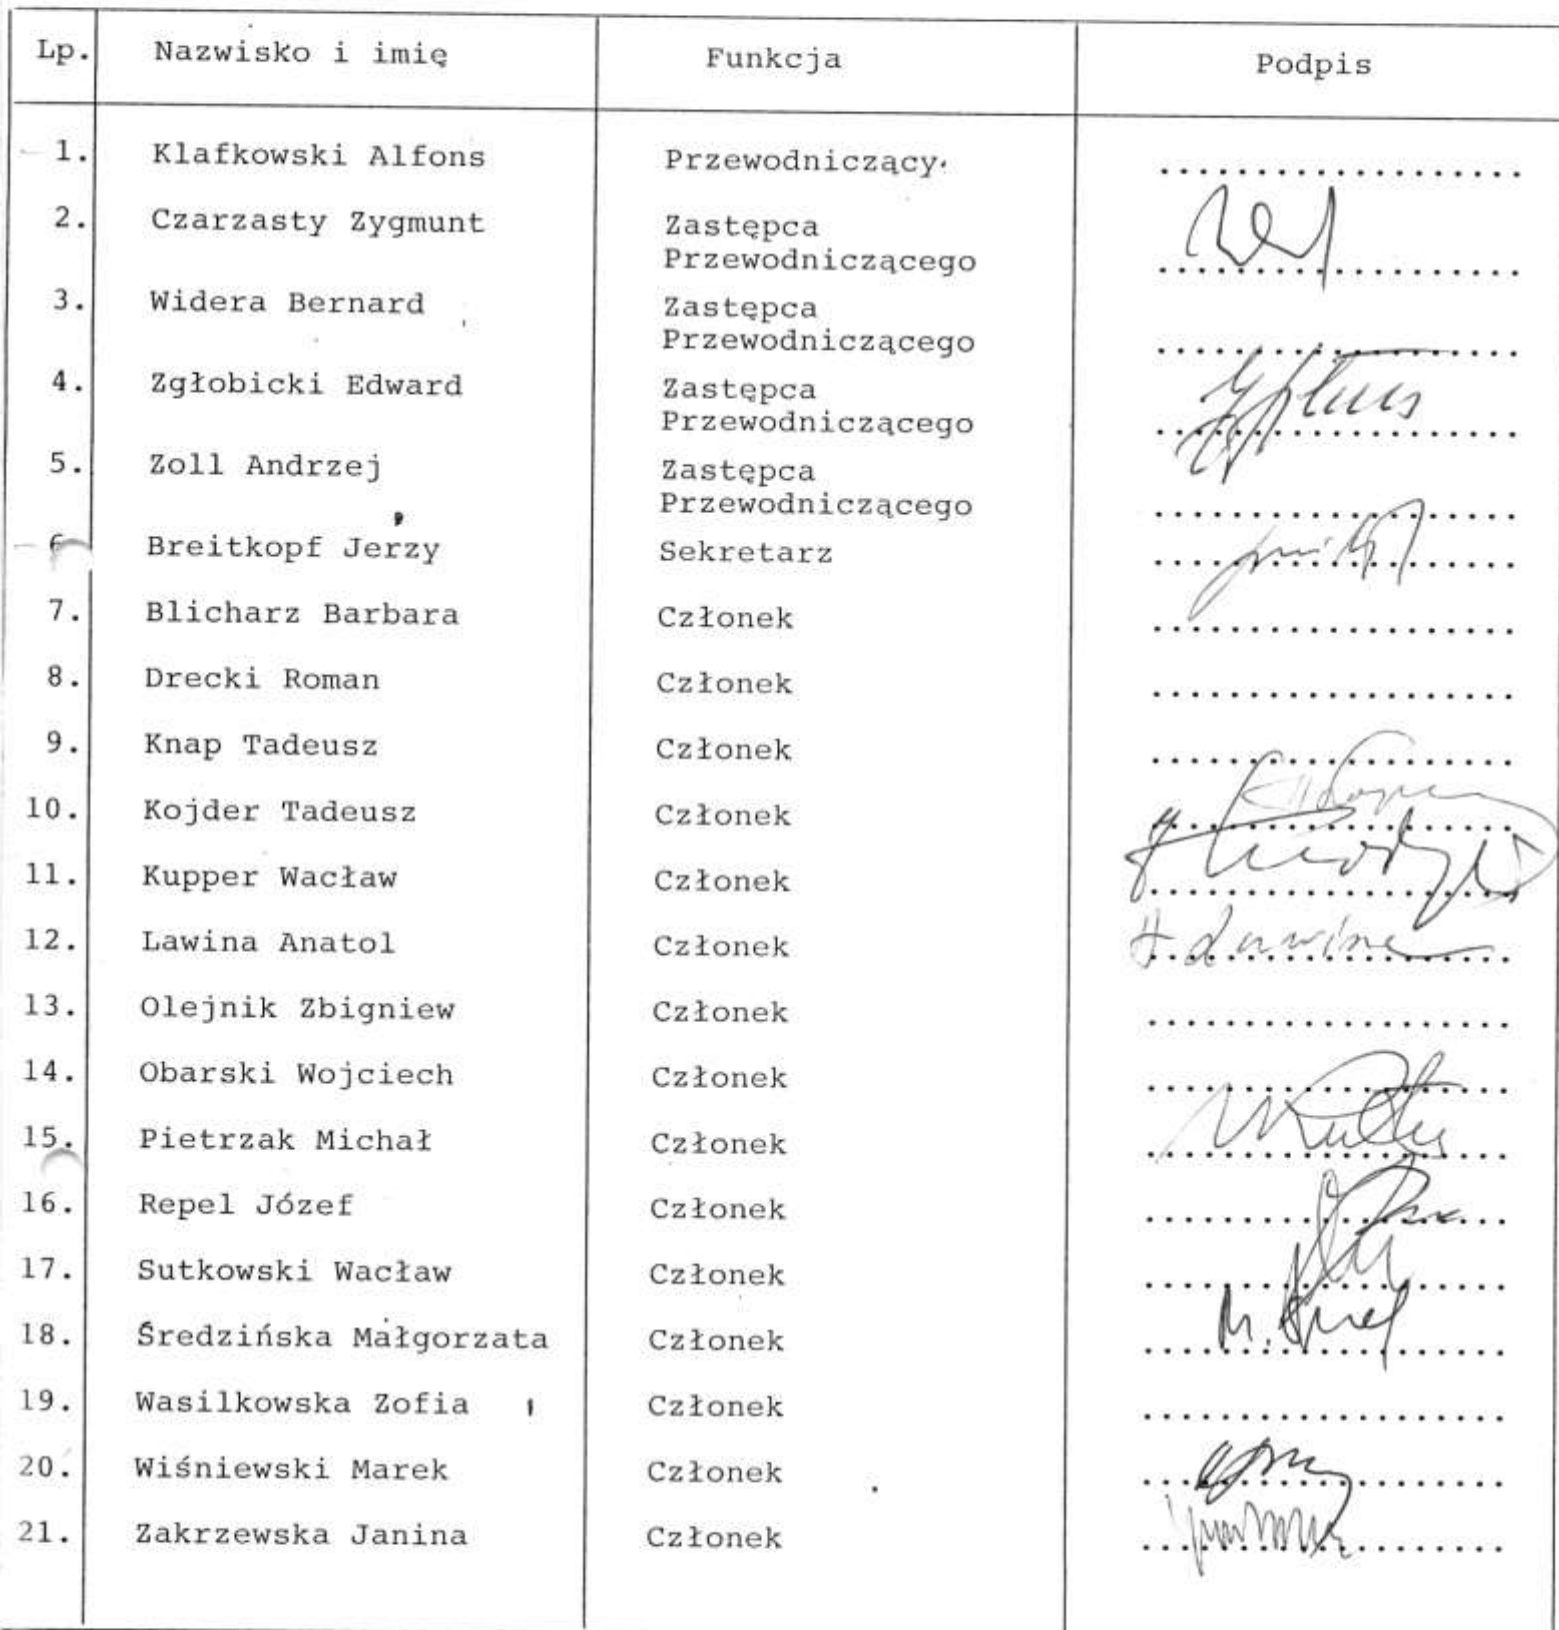 Lp. Nazwisko i imię Funkcja Podpis
1. Klafkowski Alfons Przewodniczący. ....................
2. Czarzasty Zygmunt Zastępca
Przewodniczącego ....................
3. Widera Bernard Zastępca
Przewodniczącego ....................
4. Zgłobicki Edward Zastępca
Przewodniczącego ....................
5. Zoll Andrzej Zastępca
Przewodniczącego ....................
6. Breitkopf Jerzy Sekretarz ....................
7. Blicharz Barbara Członek ....................
8. Drecki Roman Członek ....................
9. Knap Tadeusz Członek ....................
10. Kojder Tadeusz Członek ....................
11. Kupper Wacław Członek ....................
12. Lawina Anatol Członek ....................
13. Olejnik Zbigniew Członek ....................
14. Obarski Wojciech Członek ....................
15. Pietrzak Michał Członek ....................
16. Repel Józef Członek ....................
17. Sutkowski Wacław Członek ....................
18. Średzińska Małgorzata Członek ....................
19. Wasilkowska Zofia Członek ....................
20. Wiśniewski Marek Członek ....................
21. Zakrzewska Janina Członek ....................